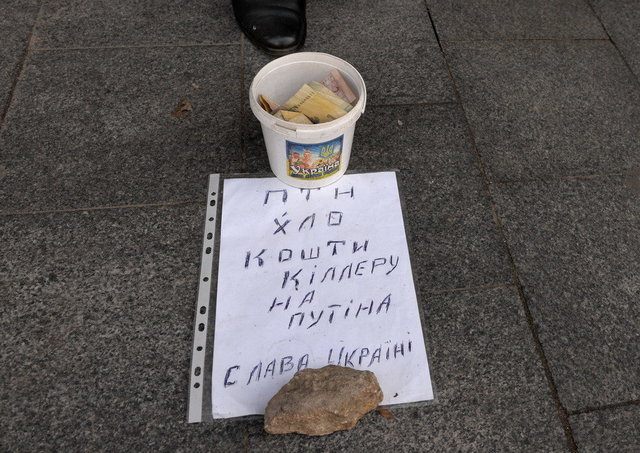 Україна
ПТН
ХЛО
КОШТИ
КІЛЛЕРУ
НА
ПУТІНА
СЛАВА УКРАЇНІ